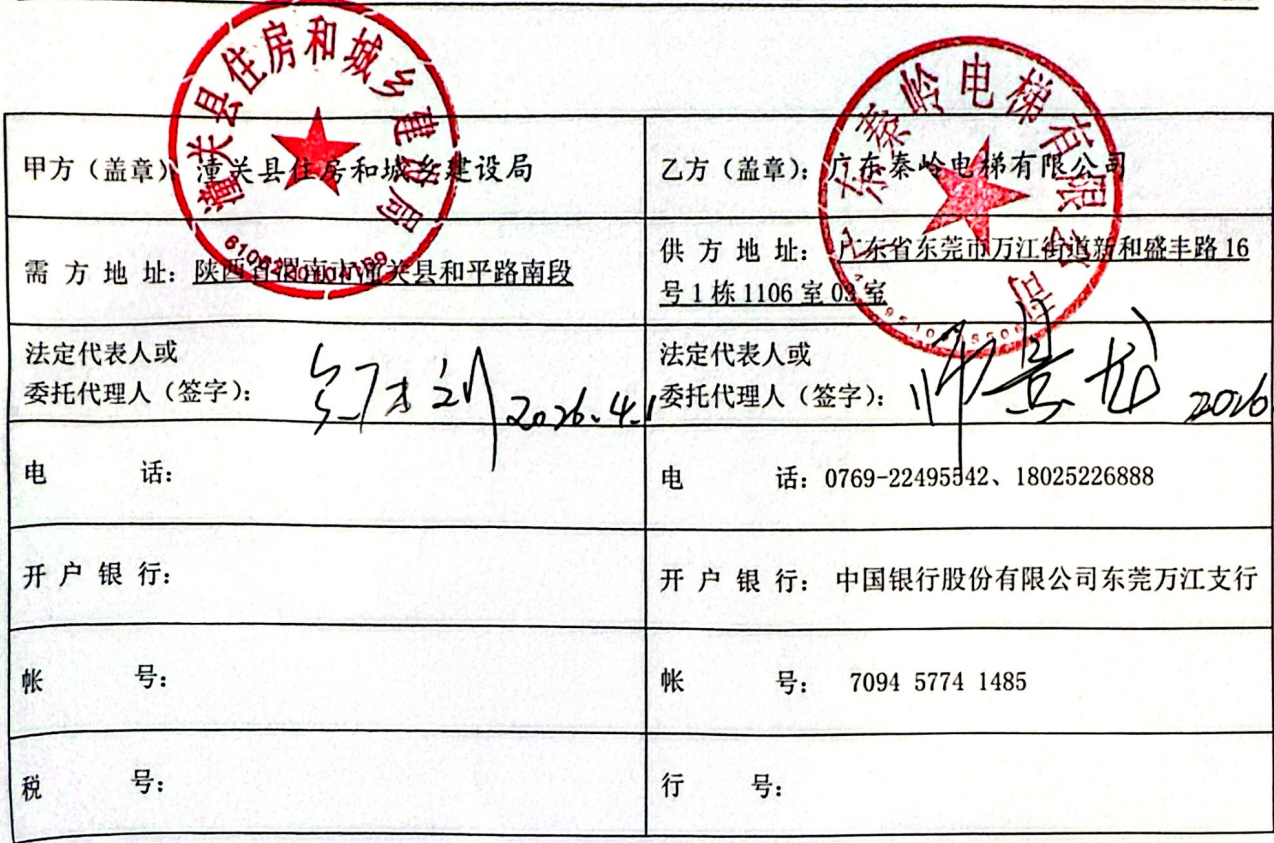 甲方（盖章）：潼关县住房和城乡建设局
乙方（盖章）：广东秦岭电梯有限公司
需方地址：陕西省渭南市潼关县和平路南段
供方地址：广东省东莞市万江街道新和盛丰路16
号1栋1106室03室
法定代表人或
委托代理人（签字）：
2026.4.1
法定代表人或
委托代理人（签字）：
2026
电话：
电话：0769-22495542、18025226888
开户银行：
开户银行：中国银行股份有限公司东莞万江支行
帐号：
帐号：7094 5774 1485
税号：
行号：
潼关县住房和城乡建设局
广东秦岭电梯有限公司